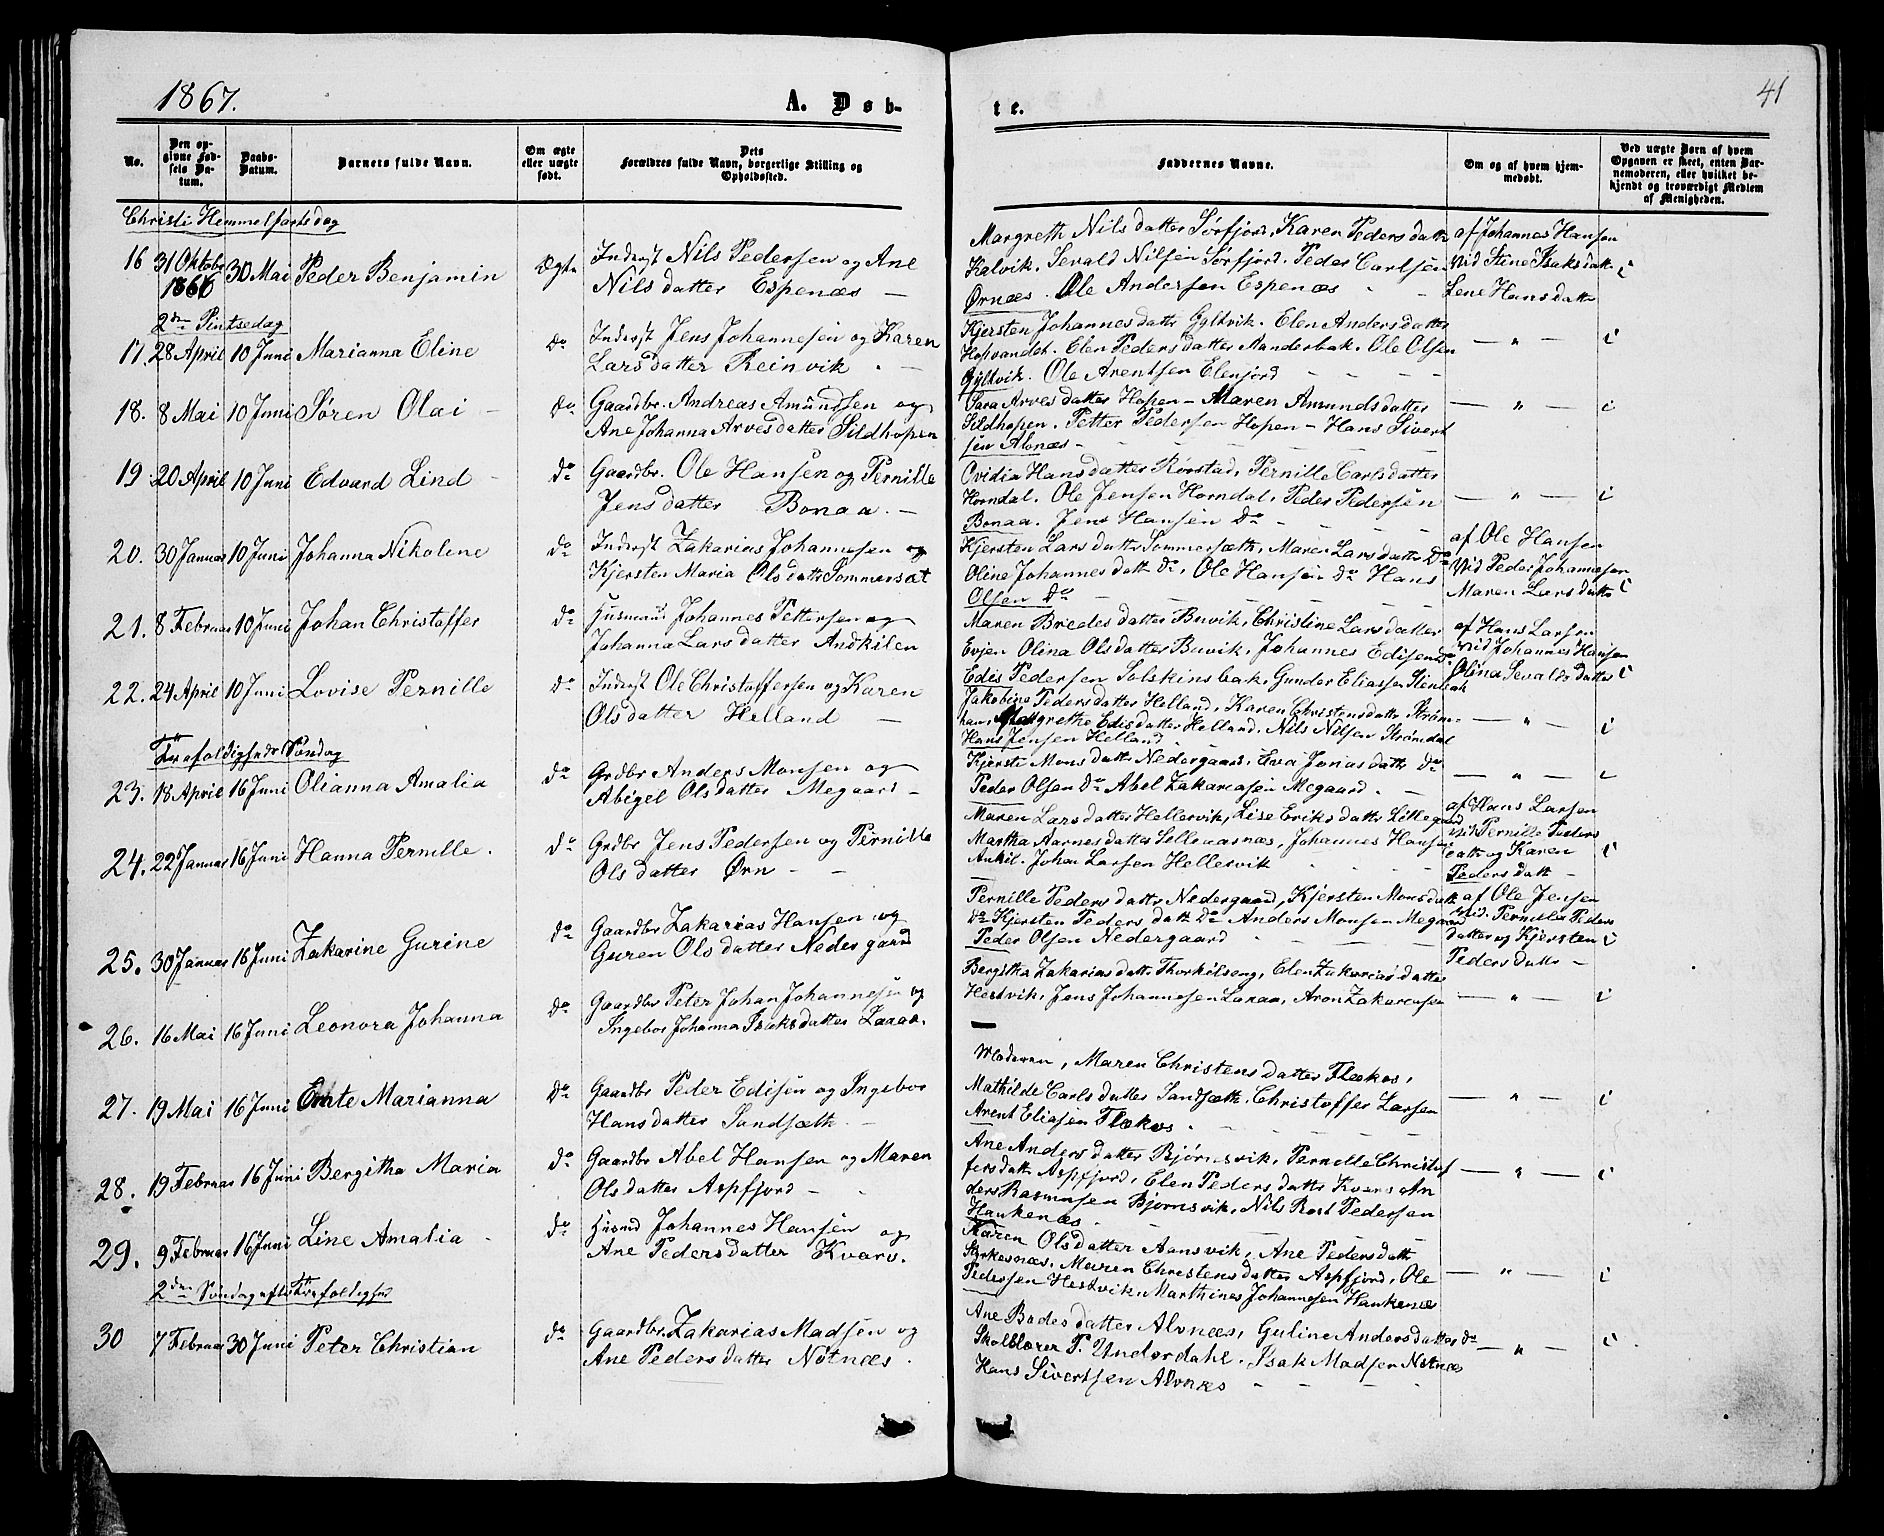 1867.
A. Døb-
te.
41
No.
Den op-
givne Fød-
sels Da-
tum.
Daabs-
Datum.
Barnets fulde Navn.
Om ægte
eller uægte
født.
Dets
Forældres fulde Navn, borgerlige Stilling og
Opholdssted.
Faddernes Navne.
Om og af hvem hjem-
medøbt.
Ved uægte Børn af hvem
Opgaven er skeet, enten Bar-
nemoderen, eller hvilket be-
kjendt og troværdigt Medlem
af Menigheden.
Christi Hemmelfartsdag
16 31 Oktobr 1866 30 Mai Peder Benjamin Ægte
Inderst Nils Pedersen og Ane
Nilsdatter Espenæs —
Margreth Nilsdatter Sørfjord, Karen Pedersdatt
Kalvik. Sevald Nilsen Sørfjord. Peder Carlsen
Ørnæs. Ole Andersen Espenæs
af Johannes Hansen
Vid Stine Isaksdatt
Lene Hansdatter
2den Pintsedag
17. 28 April 10 Juni Marianna Eline do
Inderst Jens Johannesen og Karen
Larsdatter Reinvik
Kjersten Johannesdatter Gyltvik. Elen Andersdatter
Hopvandet. Elen Pedersdatter Aanderbak. Ole Olsen
Gyltvik. Ole Arentsen Elenjord
— " —
18. 8 Mai 10 Juni Søren Olai do
Gaardbr. Andreas Amundsen og
Ane Johanna Arvesdatter Sildhopen
Sara Arvesdatter Hopen — Maren Amundsdatter
Sildhopen. Petter Pedersen Hopen — Hans Sivert
sen Alvnæs —
— " —
19 20 April 10 Juni Edvard Lind do
Gaardbr. Ole Hansen og Pernille
Jensdatter Bonaa. —
Ovidia Hansdatter Rørstad, Pernille Carlsdatter
Horndal. Ole Jensen Horndal, Peder Pedersen
Bonaa. Jens Hansen do
— " —
20. 30 Januar 10 Juni Johanna Nikolene do
Inderst Zakarias Johannesen og
Kjersten Maria Olsdatte Sommersæt
Kjersten Larsdatte Sommersæth, Maren Larsdatte do
Oline Johannesdatt do, Ole Hansen do Hans
Olsen do
af Ole Hansen
Vid Peder Johannesen
Maren Larsdatte
21. 8 Februar 10 Juni Johan Christoffer do
Husmand Johannes Pettersen og
Johanna Larsdatter Andkilen
Maren Bredesdatter Buvik, Christine Larsdatter
Evjen Olina Olsdatter Buvik, Johannes Edisen do
Edis Pedersen Solskinsbak, Gunder Eliassen Stenbak
af Hans Larsen
Vid Johannes Hansen
Olina Sevaldsdatter
22. 24 April 10 Juni Lovise Pernille do
Inderst Ole Christoffersen og Karen
Olsdatter Helland —
Jakobine Pedersdatter Helland, Karen Christensdatte Strøm-
hau, Margrethe Edisdatter Helland. Nils Nilsen Strømdal
Hans Jensen Helland
— " —
Trefoldigheds Søndag
23. 18 April 16 Juni Olianna Amalia do
Grdbr Anders Monsen og
Abigel Olsdatter Megaard —
Kjersti Monsdatt Nedergaard, Eva Jonasdatte do
Peder Olsen do Abel Zakariasen Megaard. —
— " —
24. 22 Januar 16 Juni Hanna Pernille. do
Grdbr Jens Pedersen og Pernille
Olsdatter Ørn — —
Maren Larsdatter Hellervik, Lise Eriksdatte Lillegaard
Martha Aarnesdatter Selleuasnæs, Johannes Hansen
Ankil. Johan Larsen Hellesvik
af Hans Larsen
vid Pernille Peders
datt og Karen
Pedersdatt —
25. 30 Januar 16 Juni Zakarine Gurine do
Gaardbr Zakarias Hansen og
Guren Olsdatter Nedergaard
Pernille Pedersdatte Nedergaard, Kjersten Monsdatt
do Kjersten Pedersdatt do Anders Monsen Megaard
Peder Olsen Nedergaard
af Ole Jensen
vid. Pernille Peders
datter og Kjersten
Pedersdatte —
26. 16 Mai 16 Juni Leonora Johanna do
Gaardbr Peter Johan Johannesen og
Ingebor Johanna Isaksdatter Laxaa.
Bergitha Zakariasdatte Thorkilseng, Elen Zakariasdatter
Hestvik, Jens Johannesen Laxaa, Aron Zakariasen
— " —
27. 19 Mai 16 Juni Emte Marianna do
Gaardbr Peder Edisen og Ingebor
Hansdatter Sandsæth —
Moderen, Maren Christensdatter Flækos,
Mathilde Carlsdatter Sandsæth. Christoffer Larsen
Arent Eliasen Flækos
— " —
28. 19 Februar 16 Juni Bergitha Maria do
Gaardbr Abel Hansen og Maren
Olsdatter Aspfjord —
Ane Andersdatter Bjørnsvik, Pernille Christof
fersdatt Aspfjord, Elen Pedersdatte Kvarv An
ders Rasmusen Bjørnsvik, Nils Rost Pedersen
Haukenæs
— " —
29. 9 Februar 16 Juni Line Amalia do
Husmd Johannes Hansen og
Ane Pedersdatter Kvarv.
Karen Olsdatter Aansvik, Ane Pedersdatt
Styrkesnæs, Maren Christensdatter Aspfjord, Ole
Pedersen Hestvik, Marthines Johannesen Haukenæs
— " —
2den Søndag efter Trefoldighed
30 7 Februar 30 Juni Peter Christian do
Gaardbr. Zakarias Madsen og
Ane Pedersdatter Nøtnæs.
Ane Bodesdatter Alvnæs, Guline Andersdatter do
Skolelærer P. Underdahl. Isak Madsen Nøtnæs
Hans Sivertsen Alvnæs
— " —